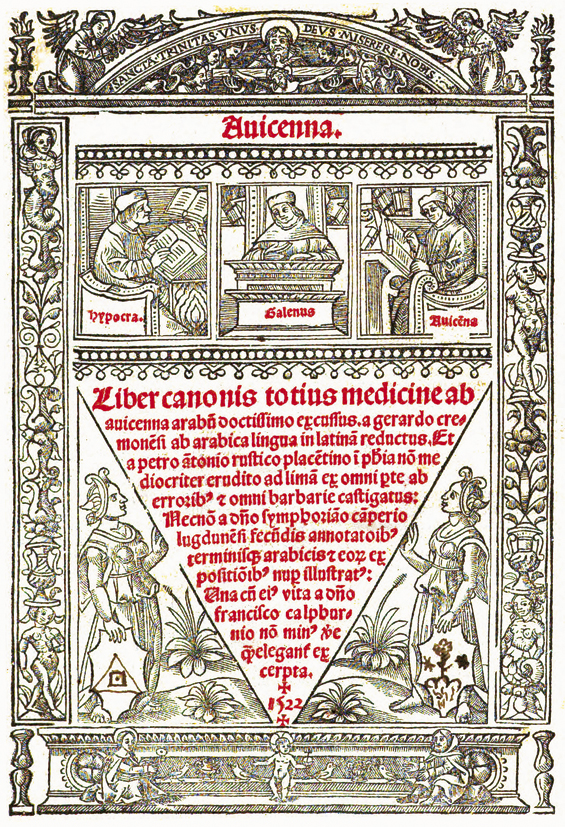 SANCTA·TRINITAS·VNUS DEVS·MISERERE·NOBIS:
Auicenna.
hypocra.
Galenus
Auicēna
Liber canonis totius medicine ab
auicenna arabū doctissimo excussus. a gerardo cre⸗
monēsi ab arabica lingua in latinā reductus. Et
a petro ātonio rustico placētino ī phīa nō me
diocriter erudito ad limā ex omni ꝑte ab
erroribꝰ ⁊ omni barbarie castigatus:
Necnō a dño symphoriāo cāperio
lugdunēsi fecūdis annotatoībꝰ
terminisqꝫ arabicis ⁊ eoꝝ ex
positiōibꝰ nuꝑ illustratꝰ:
Una cū eiꝰ vita a dño
francisco calphur⸗
nio nō minꝰ
ex
cerpta.
1522